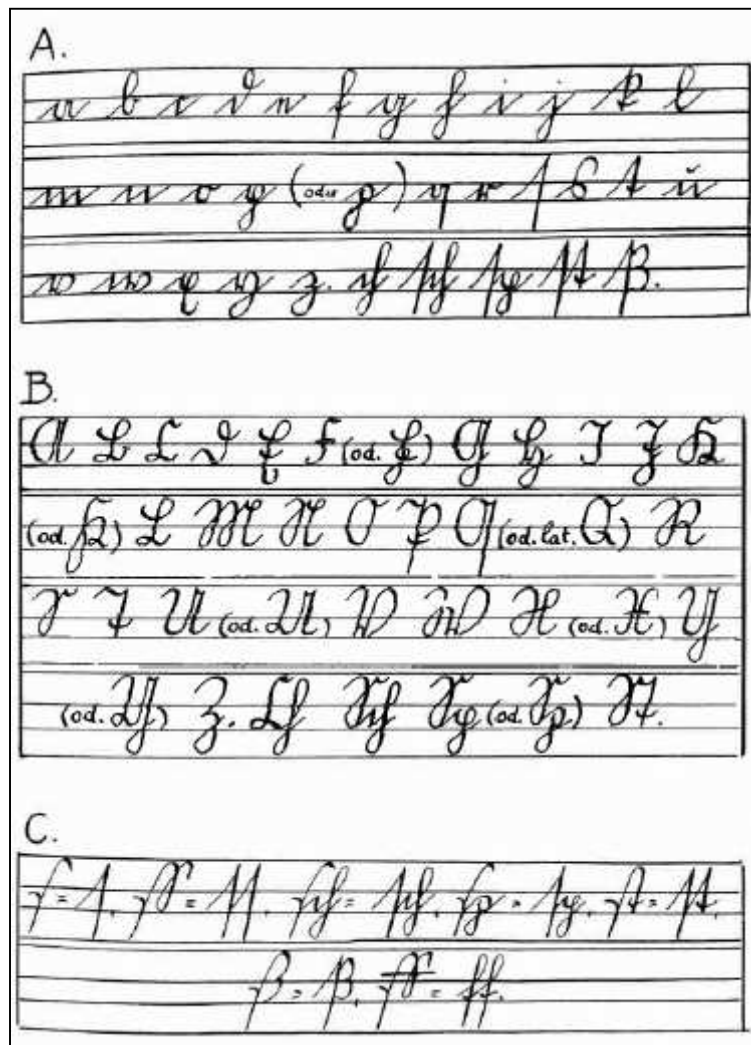 A.
a b c d e f g h i j k l
m n o p (oder p) q r ſ s t u
v w x y z. ch ſch ſp ſt ß.
B.
A B C D E F (od. F) G H I J K
(od. K) L M N O P Q (od. lat. Q) R
S T U (od. U) V W X (od. X) Y
(od. Y) Z. Ch Sch Sp (od. Sp) St.
C.
ſ = ſ. ſſ = ſſ. ſch = ſch. ſp = ſp. ſt = ſt.
ß = ß. ff = ff.